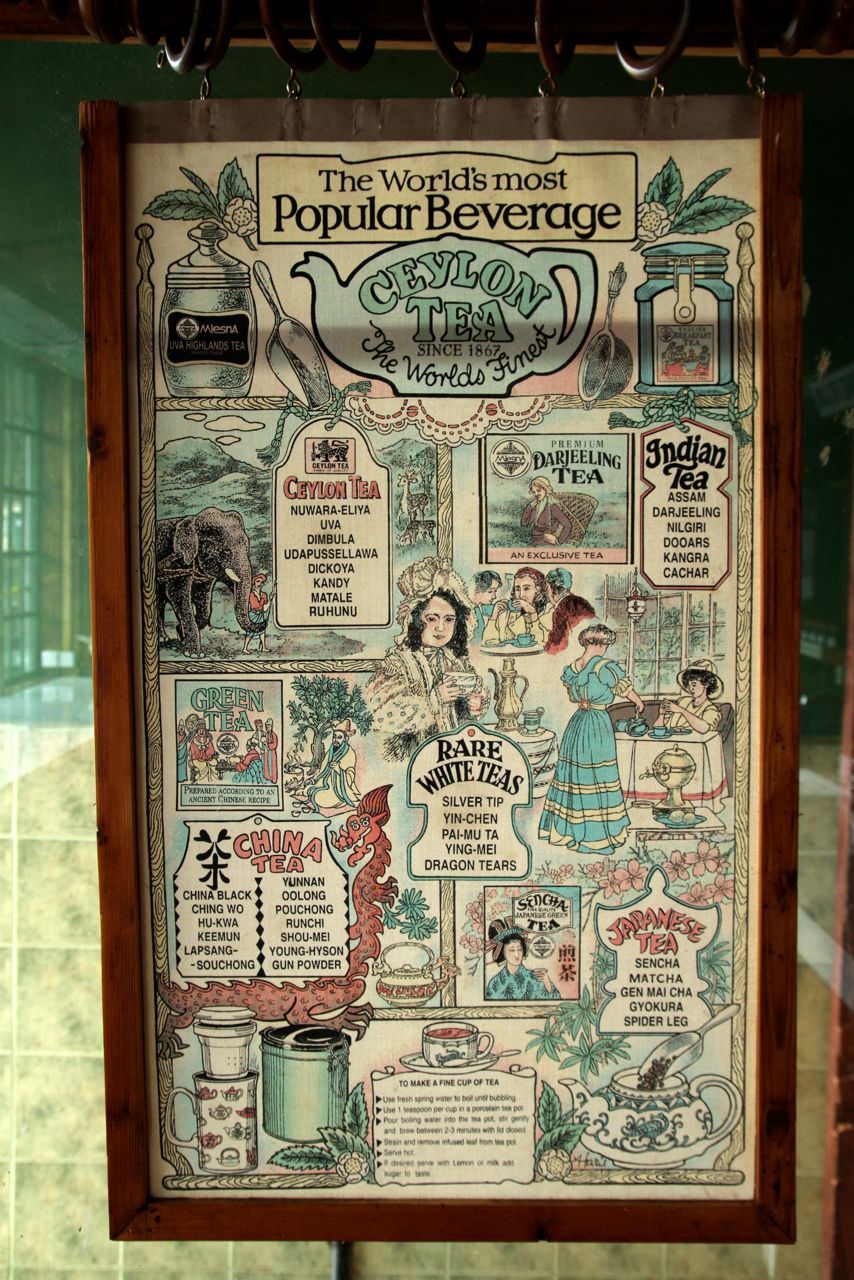 The World's most
Popular Beverage
CEYLON
TEA
SINCE 1867
The Worlds Finest
MlesnA
UVA HIGHLANDS TEA
ENGLISH
BREAKFAST
TEA
CEYLON TEA
CEYLON TEA
NUWARA-ELIYA
UVA
DIMBULA
UDAPUSSELLAWA
DICKOYA
KANDY
MATALE
RUHUNU
MlesnA
PREMIUM
DARJEELING
TEA
AN EXCLUSIVE TEA
Indian
Tea
ASSAM
DARJEELING
NILGIRI
DOOARS
KANGRA
CACHAR
GREEN
TEA
PREPARED ACCORDING TO AN
ANCIENT CHINESE RECIPE
RARE
WHITE TEAS
SILVER TIP
YIN-CHEN
PAI-MU TA
YING-MEI
DRAGON TEARS
茶
CHINA
TEA
CHINA BLACK
CHING WO
HU-KWA
KEEMUN
LAPSANG-
-SOUCHONG
YUNNAN
OOLONG
POUCHONG
RUNCHI
SHOU-MEI
YOUNG-HYSON
GUN POWDER
SENCHA
JAPANESE GREEN
TEA
煎
茶
JAPANESE
TEA
SENCHA
MATCHA
GEN MAI CHA
GYOKURA
SPIDER LEG
TO MAKE A FINE CUP OF TEA
Use fresh spring water to boil until bubbling.
Use 1 teaspoon per cup in a porcelain tea pot
Pour boiling water into the tea pot, stir gently
and brew between 2-3 minutes with lid closed.
Strain and remove infused leaf from tea pot.
Serve hot.
If desired serve with Lemon or milk add
sugar to taste.
Harris